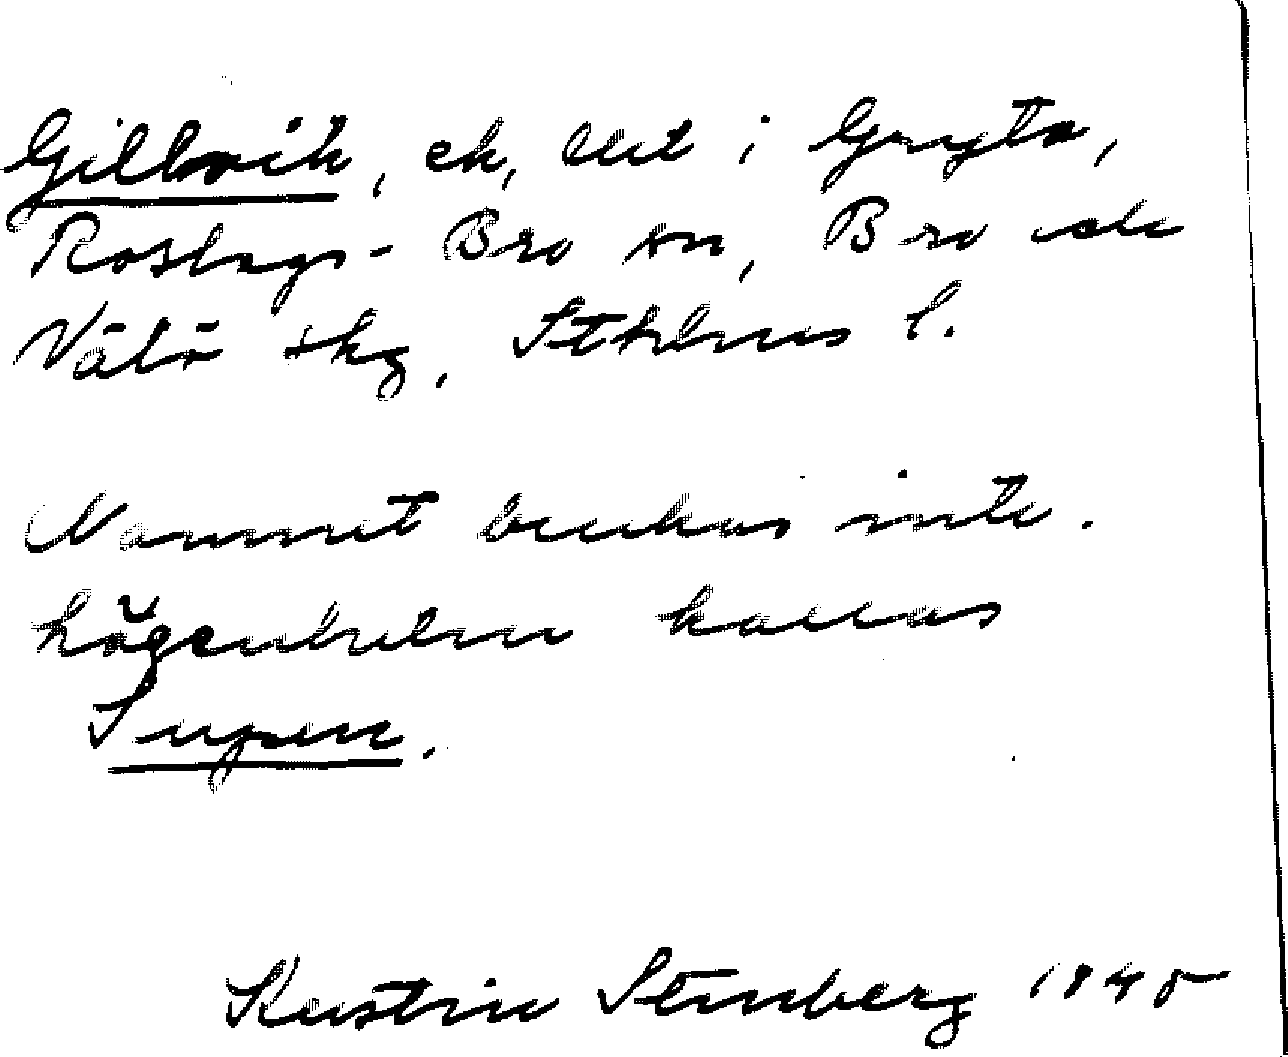 Gillvik, ek, litt i Gryta,
Roslags-Bro sn, Bro och
Vätö skg, Sthlms l.
Namnet brukas inte.
Lägenheten kallas
Supen.
Kerstin Stenberg 1945